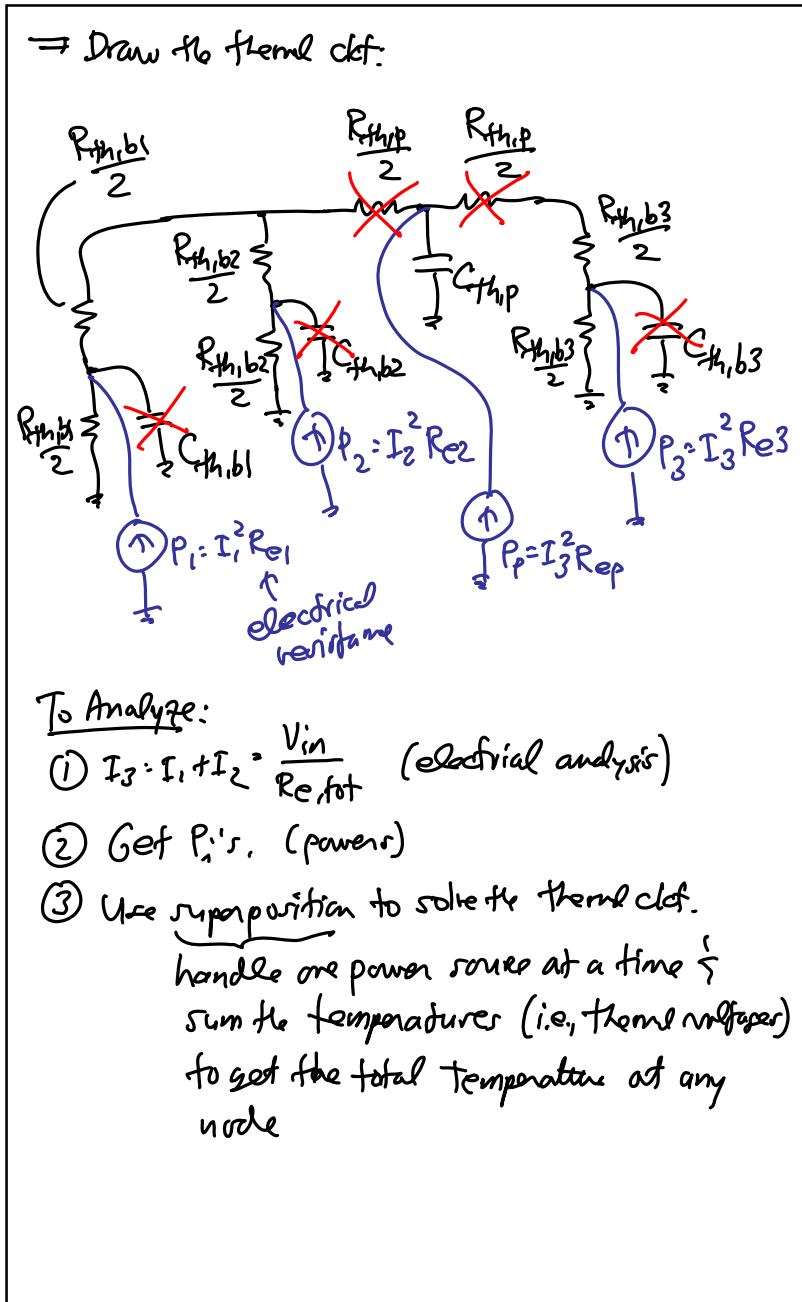 ⇒ Draw the thermal ckt:
R_th,b1/2
R_th,p/2 R_th,p/2
R_th,b2/2
R_th,b3/2
C_th,p
R_th,b2/2
C_th,b2
R_th,b3/2
C_th,b3
R_th,b1/2
C_th,b1
P_2 = I_2^2 R_e2
P_3 = I_3^2 R_e3
P_1 = I_1^2 R_e1
P_p = I_3^2 R_ep
↑
electrical
resistance
To Analyze:
① I_3 = I_1 + I_2 = V_in/R_e,tot (electrical analysis)
② Get P_i's. (powers)
③ Use superposition to solve the thermal ckt.
handle one power source at a time &
sum the temperatures (i.e., thermal voltages)
to get the total temperature at any
node